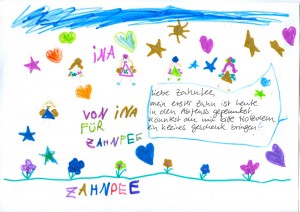 iNA
VON iNA
FÜR
ZAHNFEE
Liebe Zahnfee,
mein erster Zahn ist heute
in den Abfluss gepurzelt.
Könntest du mir bitte trotzdem
ein kleines Geschenk bringen?
ZAHNFEE